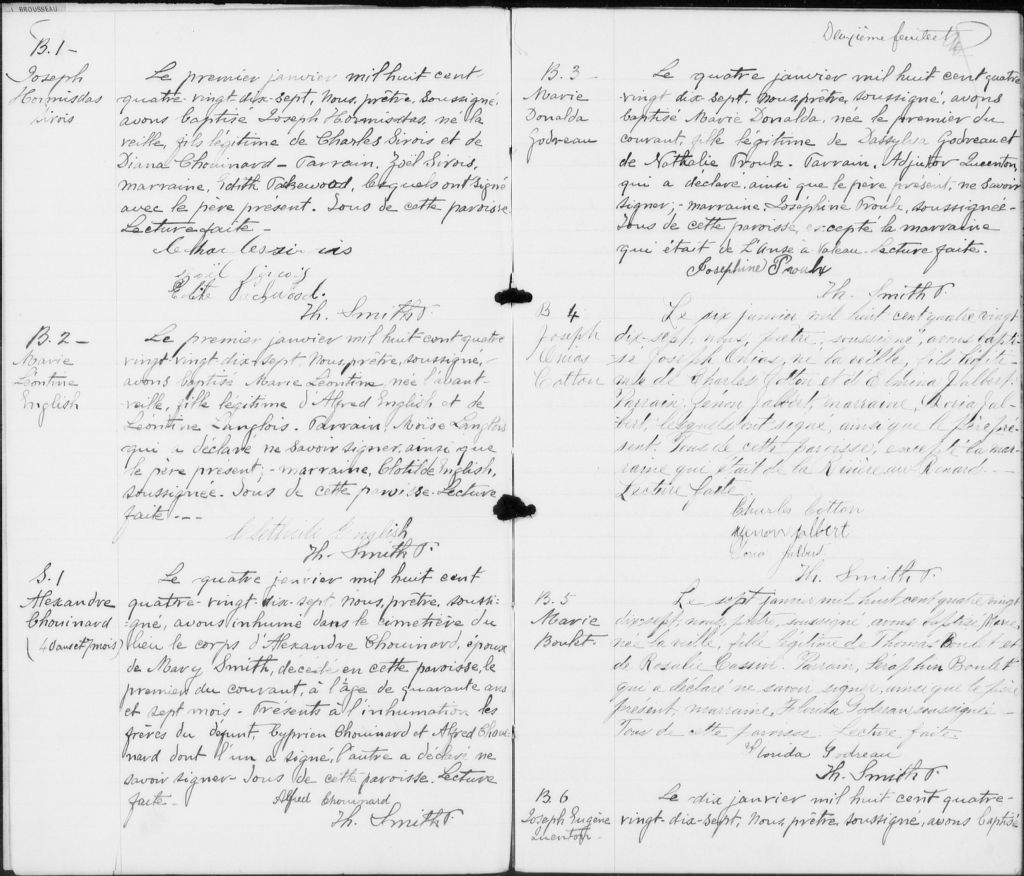 J. BROUSSEAU
B. 1 -
Joseph
Hormisdas
Sirois
Le premier janvier mil huit cent-
quatre-vingt-dix-sept, Nous, prêtre, soussigné,
avons baptisé Joseph Hormisdas, né la
veille, fils légitime de Charles Sirois et de
Diana Chouinard - Parrain, Joël Sirois,
marraine, Edith Pakewood, lesquels ont signé
avec le père présent. Tous de cette paroisse.
Lecture faite -
Charles sirois
Joël Sirois
Th. Smith P.
B. 2 -
Marie
Léontine
English
Le premier janvier mil huit cent quatre
vingt-vingt dix-sept. Nous, prêtre, soussigné,
avons baptisé Marie Léontine, née l'avant-
veille, fille légitime d'Alfred English et de
Léontine Langlois. Parrain, Moïse Langlois
qui a déclaré ne savoir signer, ainsi que
le père présent, - marraine, Clotilde English,
soussignée. Tous de cette paroisse. Lecture
faite - - -
English
Th. Smith P.
S. 1
Alexandre
Chouinard
(40 ans et 7 mois)
Le quatre janvier mil huit cent
quatre-vingt-dix-sept, nous, prêtre, soussi-
gné, avons inhumé dans le cimetière du
lieu le corps d'Alexandre Chouinard, époux
de Mary Smith, décédé en cette paroisse, le
premier du courant, à l'âge de quarante ans
et sept mois - Présents à l'inhumation les
frères du défunt, Cyprien Chouinard et Alfred Choui-
nard dont l'un a signé, l'autre a déclaré ne
savoir signer - Tous de cette paroisse. Lecture
faite -
Alfred Chouinard
Th. Smith P.
Deuxième feuillet
B. 3 -
Marie
Donalda
Godreau
Le quatre janvier mil huit cent quatre
vingt dix-sept. Nous, prêtre, soussigné, avons
baptisé Marie Donalda, née le premier du
courant, fille légitime de Godreau et
de Nathalie Proulx. Parrain, Adjutor Quenton,
qui a déclaré, ainsi que le père présent, ne savoir
signer; - marraine, Joséphine Proulx, soussignée -
Tous de cette paroisse, excepté la marraine
qui était de L'Anse à Valeau. Lecture faite.
Josephine Proulx
Th. Smith P.
B 4
Joseph
Onias
Cotton
Le six janvier mil huit cent quatre vingt
dix-sept, nous, prêtre, soussigné, avons bapti-
sé Joseph Onias, né la veille, fils légiti-
me de Charles Cotton et d'Elmina Jalbert.
Parrain, Jalbert, marraine, Doria Jal-
bert, lesquels ont signé, ainsi que le père pré-
sent. Tous de cette paroisse, excepté la mar-
raine que était de la Rivière au Renard. -
Lecture faite.
Charles Cotton
Jalbert
Doria Jalbert
Th. Smith P.
B. 5
Marie
Boulet
Le sept janvier mil huit cent quatre vingt
dix-sept, nous, prêtre, soussigné, avons baptisé, Marie,
née la veille, fille légitime de Thomas Boulet et
de Rosalie Cassivi. Parrain, Séraphin Boulet
qui a déclaré ne savoir signer, ainsi que le père
présent, marraine, Florida Godreau soussignée -
Tous de cette paroisse. Lecture faite.
Florida Godreau
Th. Smith P.
B. 6
Joseph Eugène
Quenton
Le dix janvier mil huit cent quatre-
vingt-dix-sept, Nous, prêtre, soussigné, avons baptisé